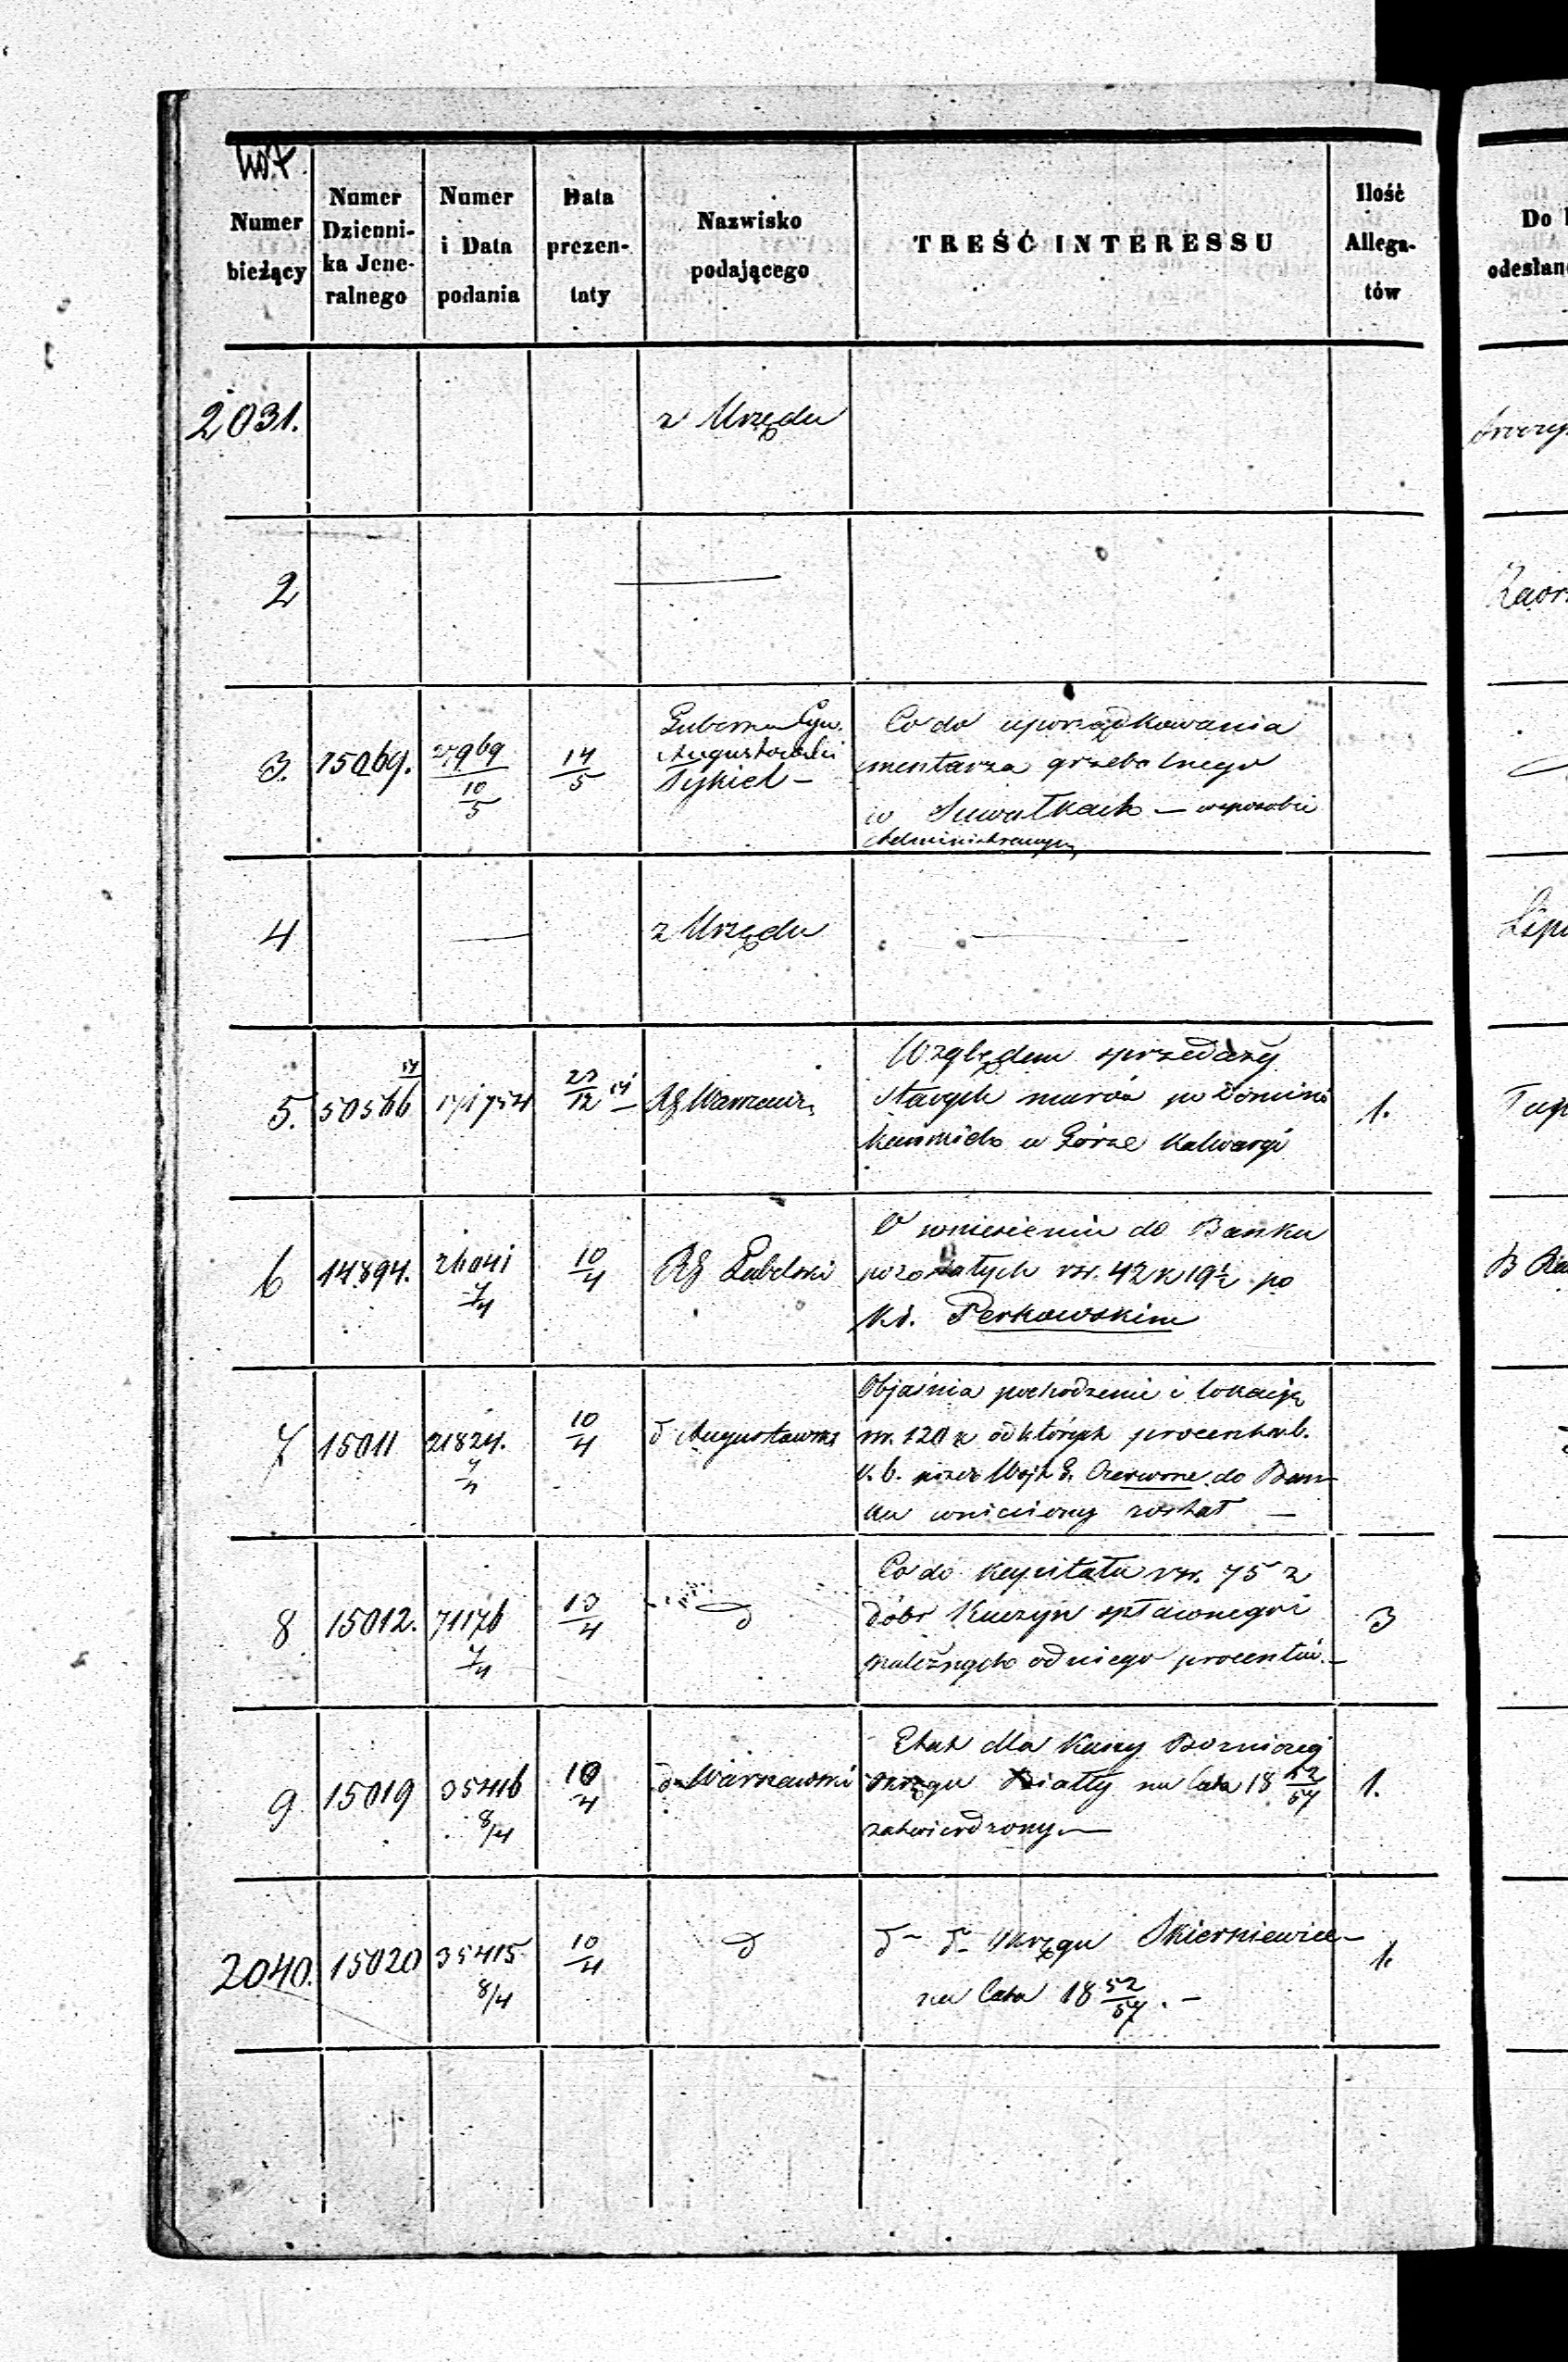 Numer
bieżący
Numer
Dzienni-
ka Jene-
ralnego
Numer
i Data
podania
Data
prezen-
taty
Nazwisko
podającego
TREŚĆ INTERESSU
Ilość
Allega-
tów
Do
odesłan
2031. z Urzędu
2
3. 15069. 27969 10/5 14/5
Augustowski
Co do uporządkowania
cmentarza grzebalnego
w Suwałkach — w sposobie
Administracyjn
4 z Urzędu
5. 50566 171754 22/12 51 RG Warszaws
Względem sprzedaży
starych murów po Domini
kańskich w Górze Kalwaryi
1.
6 14894. 7/4 10/4 RG Lubelski
O wniesieniu do Banku
pozostałych rsr. 42 k 19½ po
Ks. Perkowskim
7 15011 21824. 7/4 10/4 d Augustowski
Objaśnia pochodzenie i lokacją
rsr. 120 k od których procent za b.
r. b. przez Wójt G. Czerwone do Ban
ku wniesiony został —
8 15012. 71176 7/4 10/4 d
Co do kapitału rsr. 75 z
dóbr Kuczyn spławnego i
należnych od niego procentów. —
3
9 15019 35416 8/4 10/4 d Warszawski
Etat dla Kassy Bożniczej
Okręgu Biały na lata 18 52/57
zatwierdzony —
1.
2040. 15020 35415 8/4 10/4 d
d d Okręgu Skierniewice —
na lata 18 52/57 . —
1.